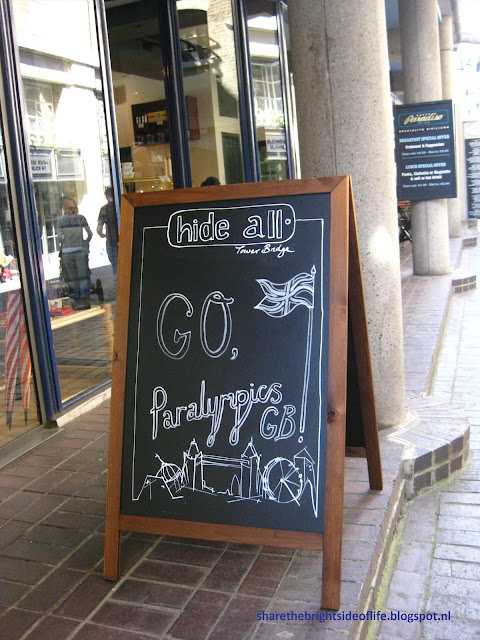 hide all
Tower Bridge
GO,
Paralympics
GB!
Paradiso
SPECIALITE SICILIENNE
BREAKFAST SPECIAL OFFER
LUNCH SPECIAL OFFER
sharethebrightsideoflife.blogspot.nl